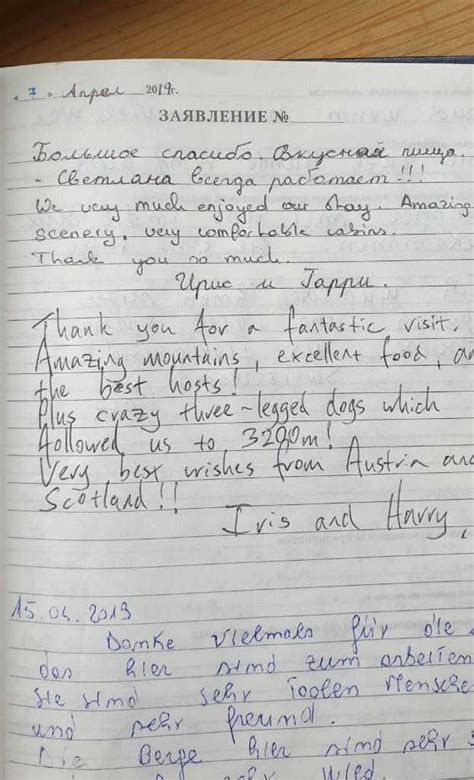 7. Апрел 2019г.
ЗАЯВЛЕНИЕ №
Большое спасибо. Вкусная пища.
- Светлана всегда работает!!!
We very much enjoyed our stay. Amazing
scenery, very comfortable cabins.
Thank you so much.
Ирис и Гарри.
Thank you for a fantastic visit.
Amazing mountains, excellent food, an
the best hosts!
Plus crazy three-legged dogs which
followed us to 3200m!
Very best wishes from Austria and
Scotland!!
Iris and Harry,
15.04.2019
Danke vielmals für die
das hier sind zum arbeiten
Sie sind sehr Toolen Mensche
und sehr freund.
Die Berge hier sind sehr
sehr